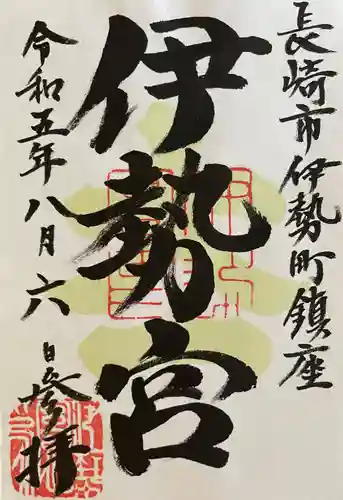 長崎市伊勢町鎮座
伊勢宮
令和五年八月六日参拝